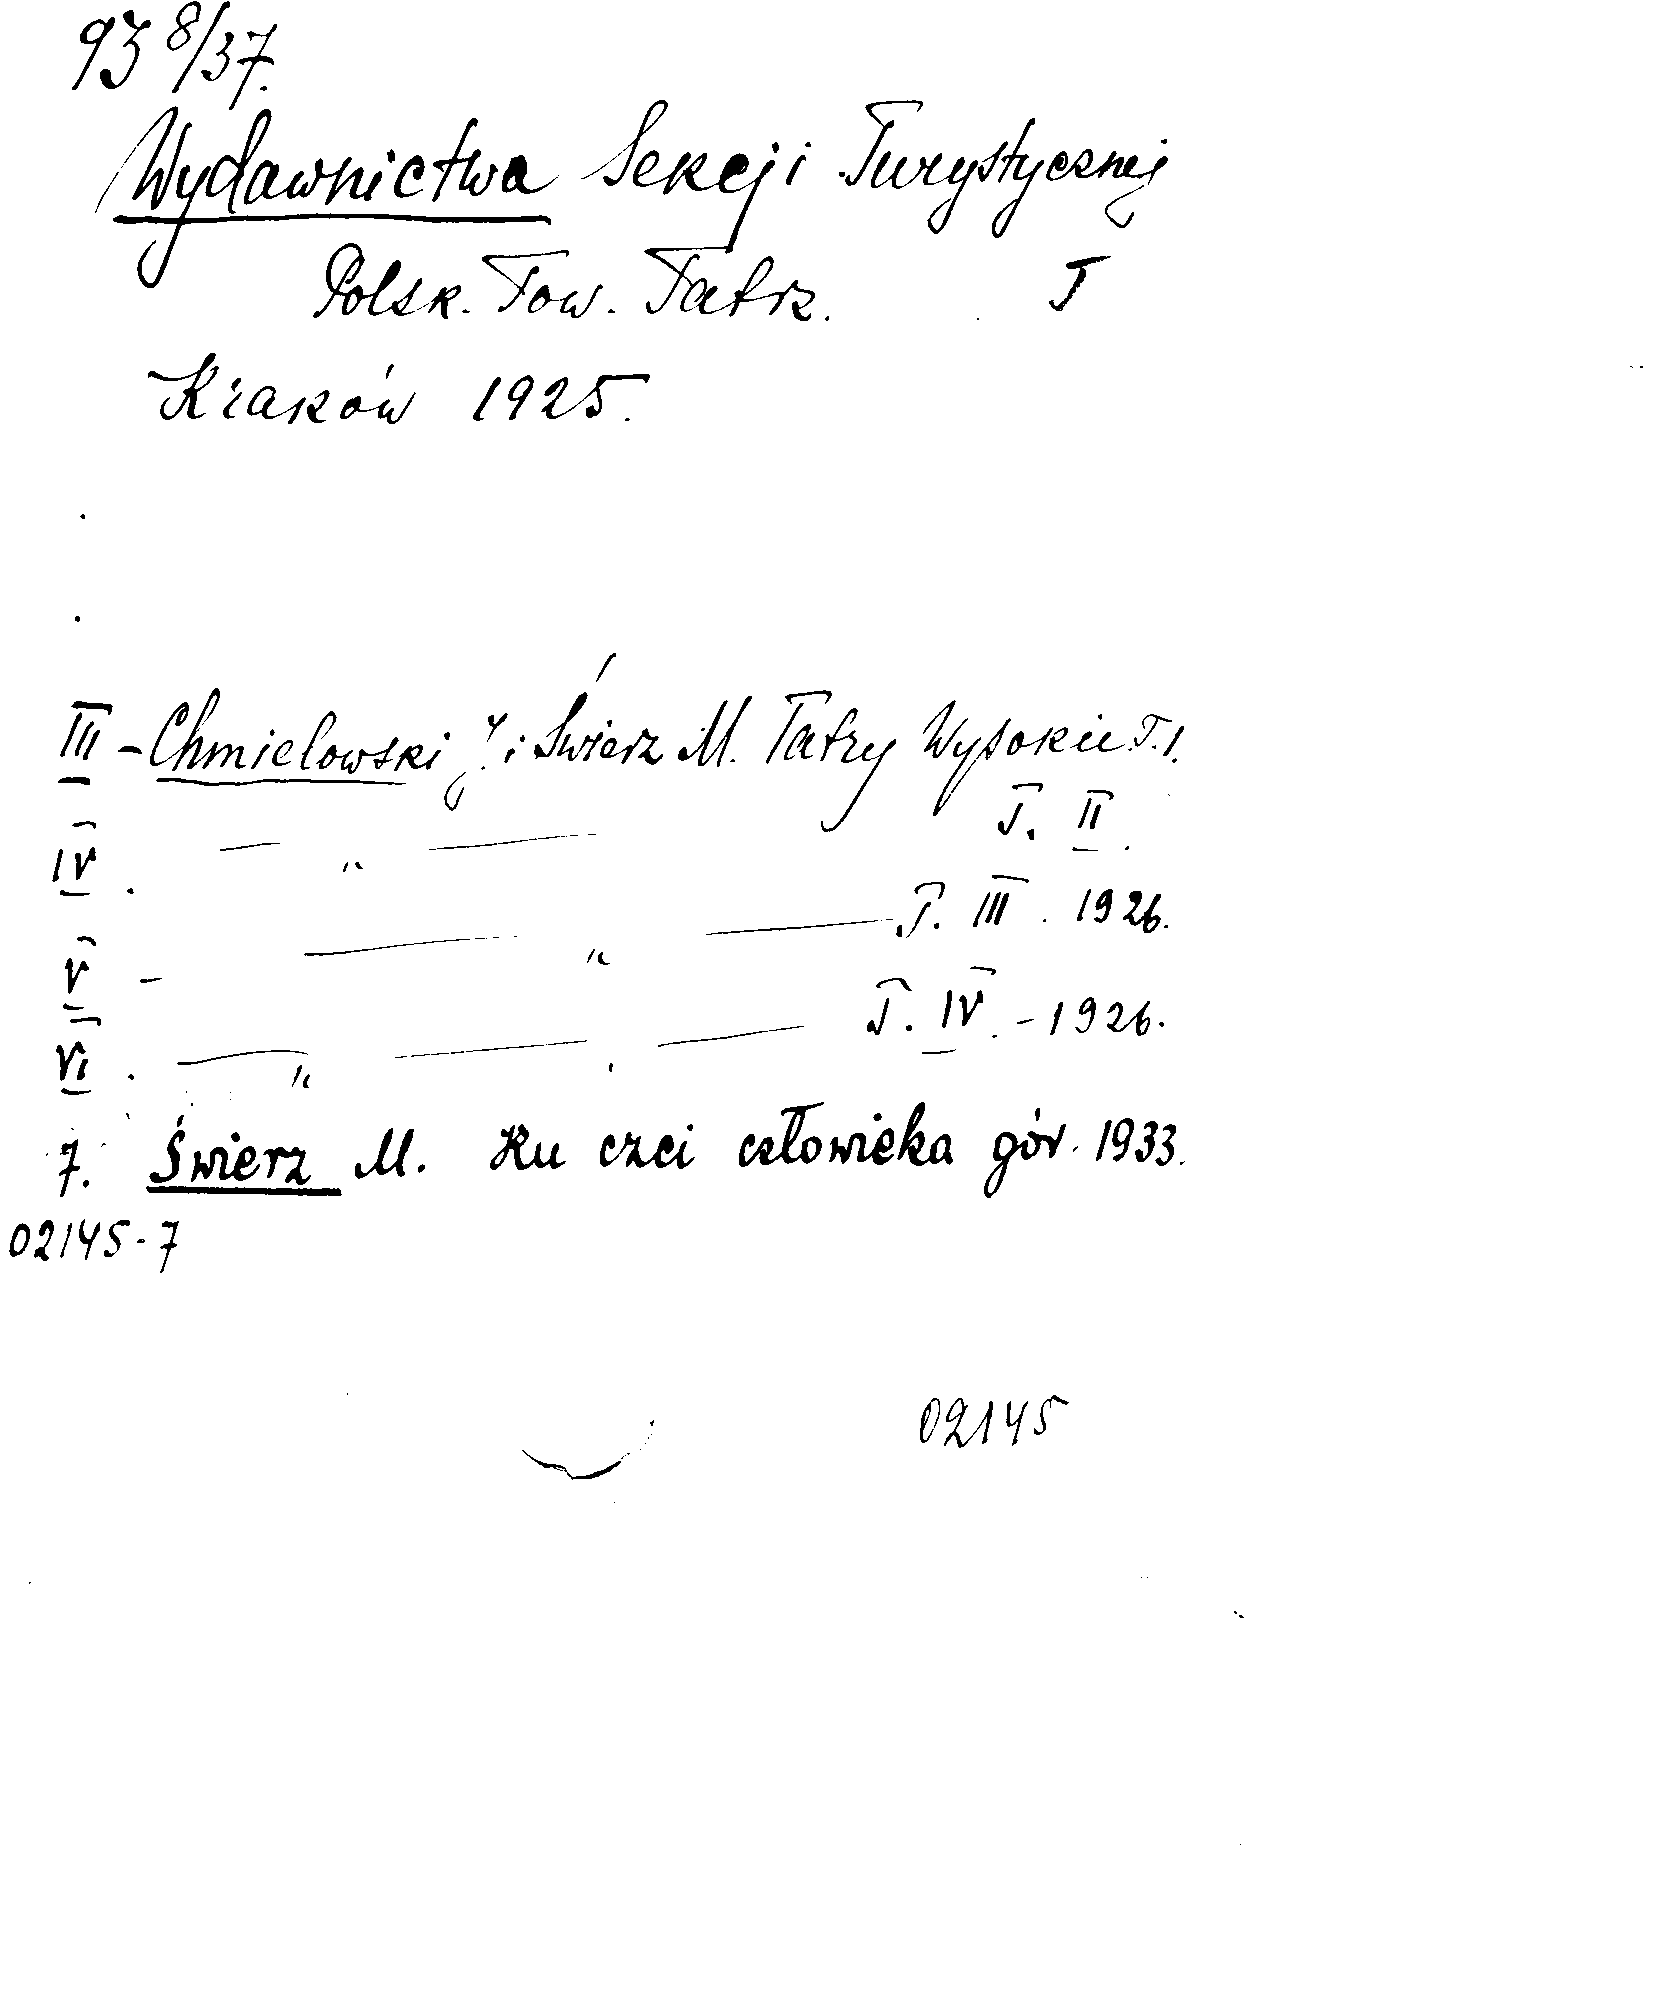 93 8/37.
Wydawnictwa Sekcji Turystycznej
Polsk. Tow. Tatrz. T
Kraków 1925.
III - Chmielowski J. i Świerz M. Tatry Wysokie T. 1.
IV. — " — T. II.
V - — " — T. III. 1926.
VI. — " — T. IV. - 1926.
7. Świerz M. Ku czci człowieka gór. 1933.
02145-7
02145